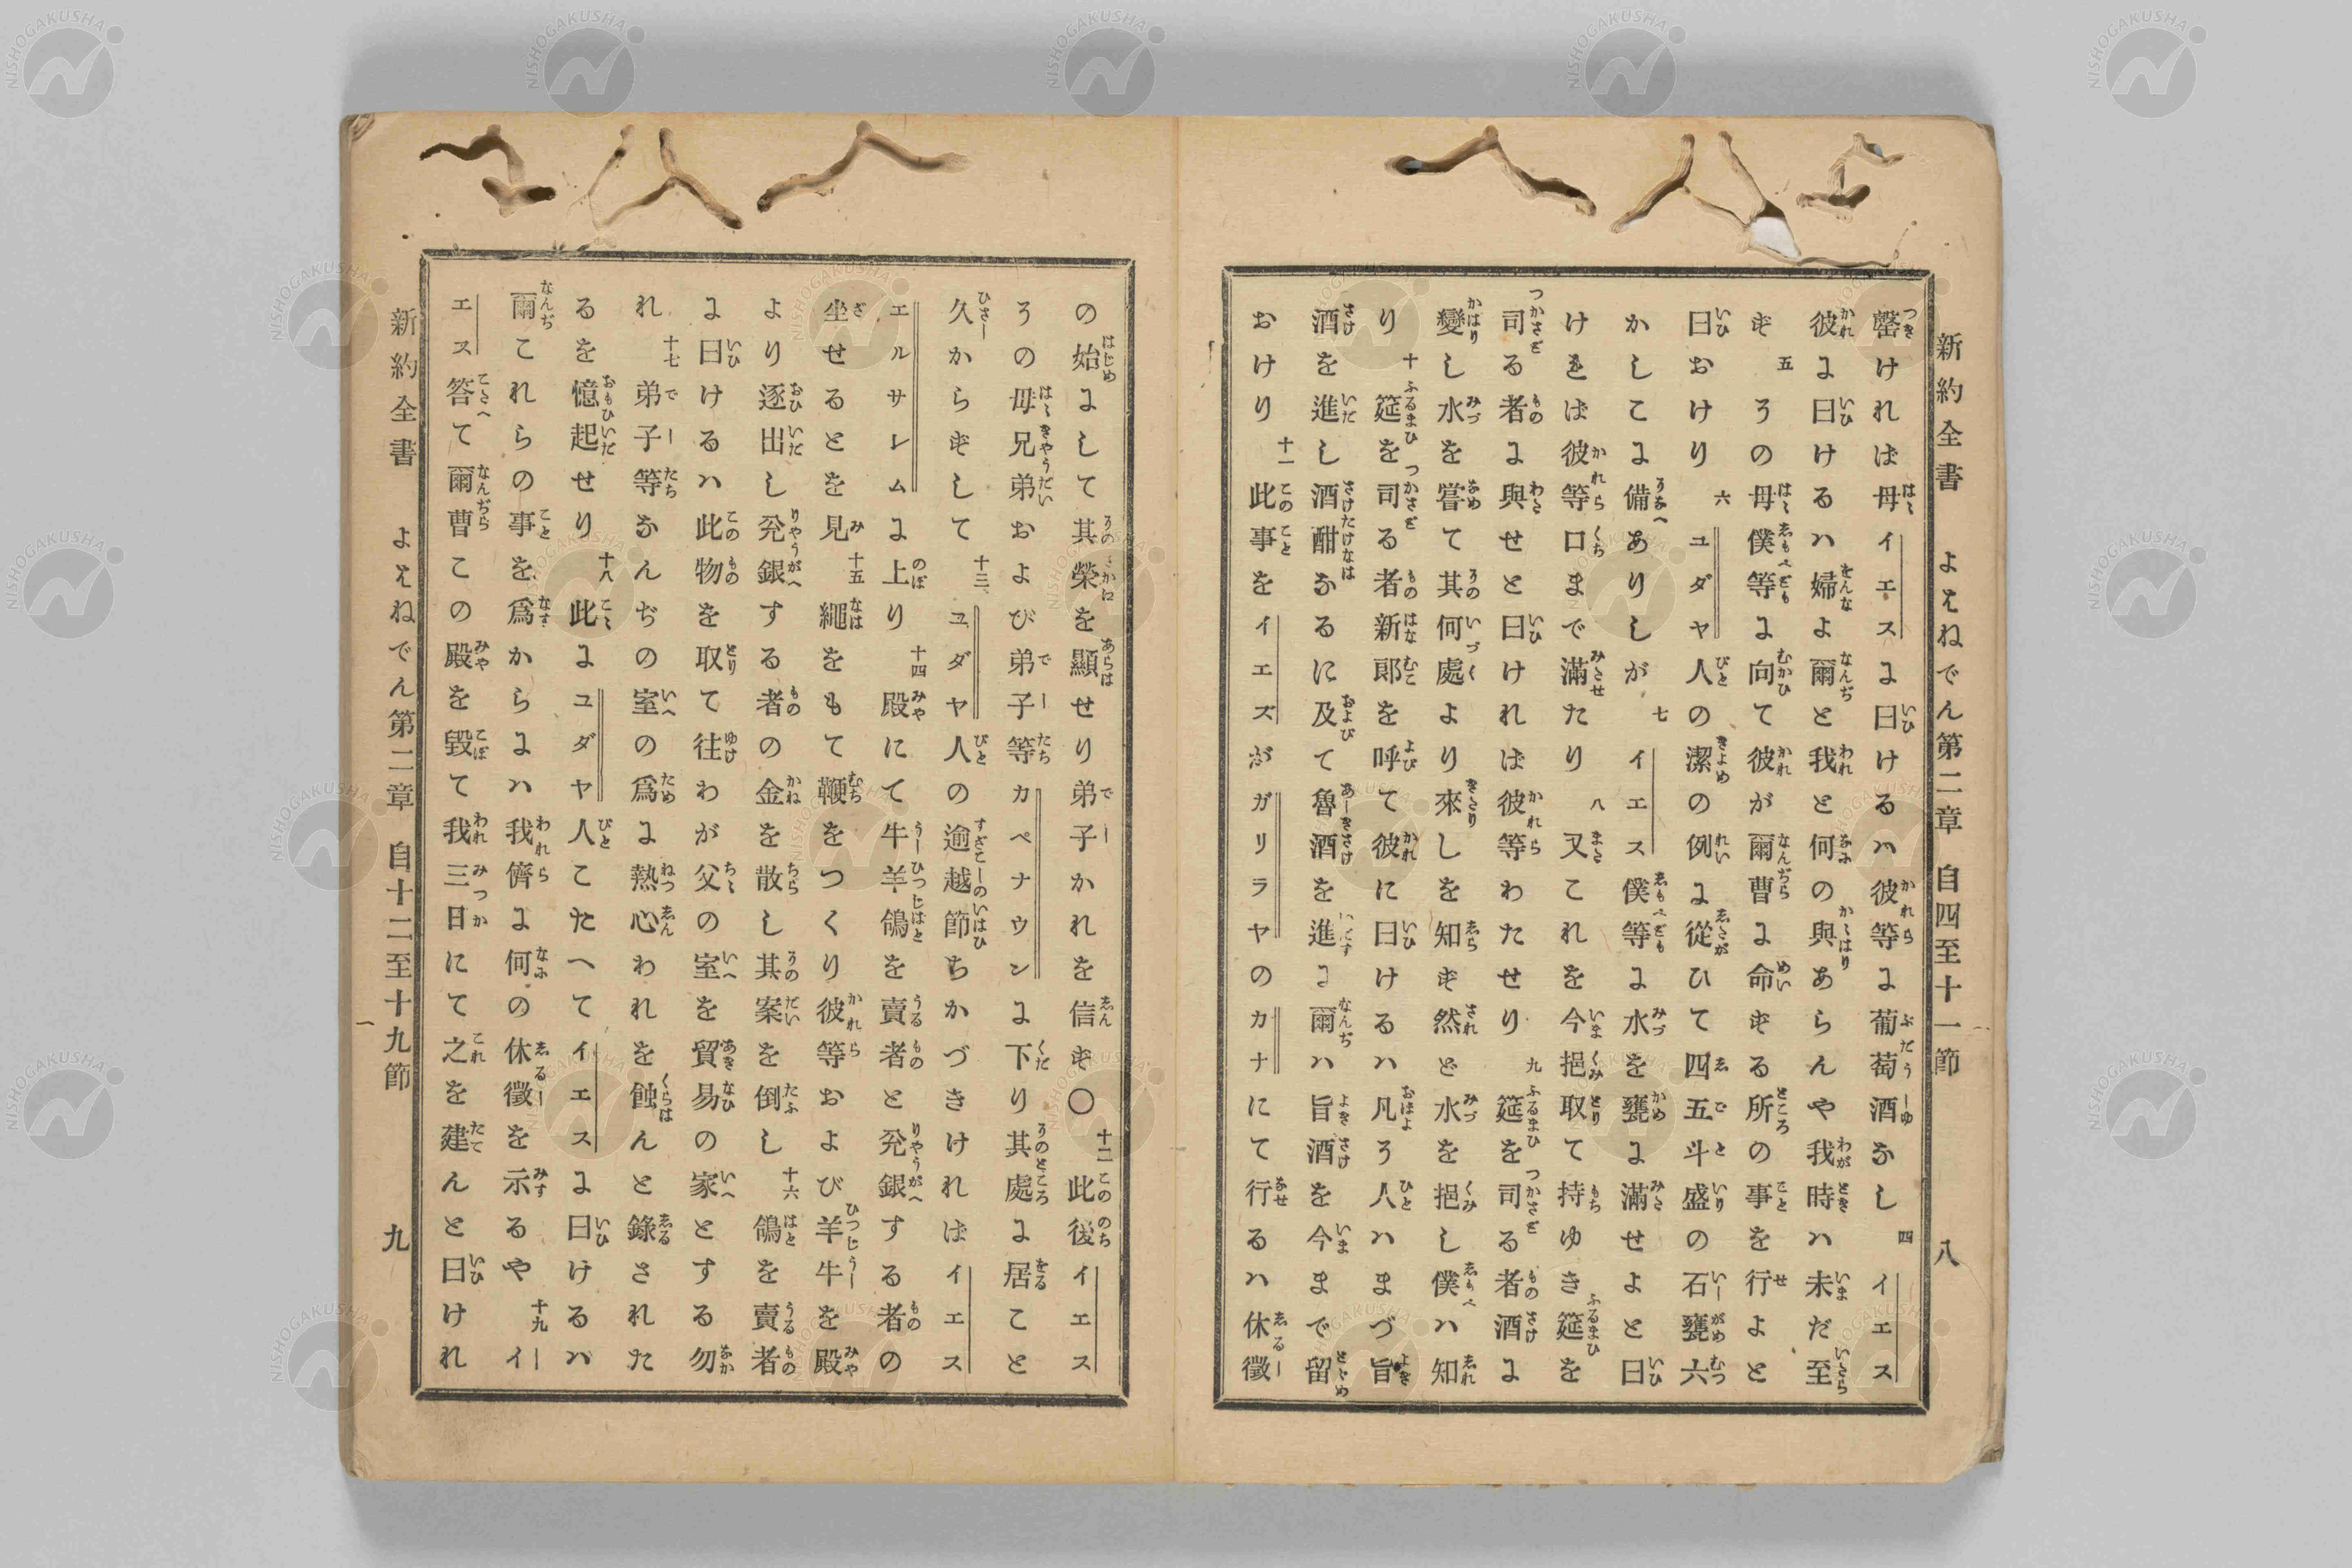 新約全書 よハねでん第二章 自四至十一節 八
罄ければ母イエスに曰けるハ彼等に葡萄酒なし 四 イエス
彼に曰けるハ婦よ爾と我と何の與あらんや我時ハ未だ至
ず 五 その母僕等に向て彼が爾曹に命ずる所の事を行よと
曰おけり 六 ユダヤ人の潔の例に從ひて四五斗盛の石甕六
かしこに備ありしが 七 イエス僕等に水を甕に滿せよと曰
けれバ彼等口まで滿たり 八 又これを今挹取て持ゆき筵を
司る者に與せと曰ければ彼等わたせり 九 筵を司る者酒に
變し水を嘗て其何處より來しを知ず然ど水を挹し僕ハ知
り 十 筵を司る者新郎を呼て彼に曰けるハ凡そ人ハまづ旨
酒を進し酒酣なるに及て魯酒を進に爾ハ旨酒を今まで留
おけり 十一 此事をイエズがガリラヤのカナにて行るハ休徵
の始にして其榮を顯せり弟子かれを信ず〇 十二 此後イエス
その母兄弟および弟子等カペナウンに下り其處に居こと
久からずして 十三 ユダヤ人の逾越節ちかづきければイエス
エルサレムに上り 十四 殿にて牛羊鴿を賣者と兌銀する者の
坐せるとを見 十五 繩をもて鞭をつくり彼等および羊牛を殿
より逐出し兌銀する者の金を散し其案を倒し 十六 鴿を賣者
に曰けるハ此物を取て往わが父の室を貿易の家とする勿
れ 十七 弟子等なんぢの室の爲に熱心われを蝕んと錄された
るを憶起せり 十八 此にユダヤ人こたへてイエスに曰けるハ
爾これらの事を爲からにハ我儕に何の休徵を示るや 十九 イ
エス答て爾曹この殿を毀て我三日にて之を建んと曰けれ
新約全書 よハねでん第二章 自十二至十九節 九